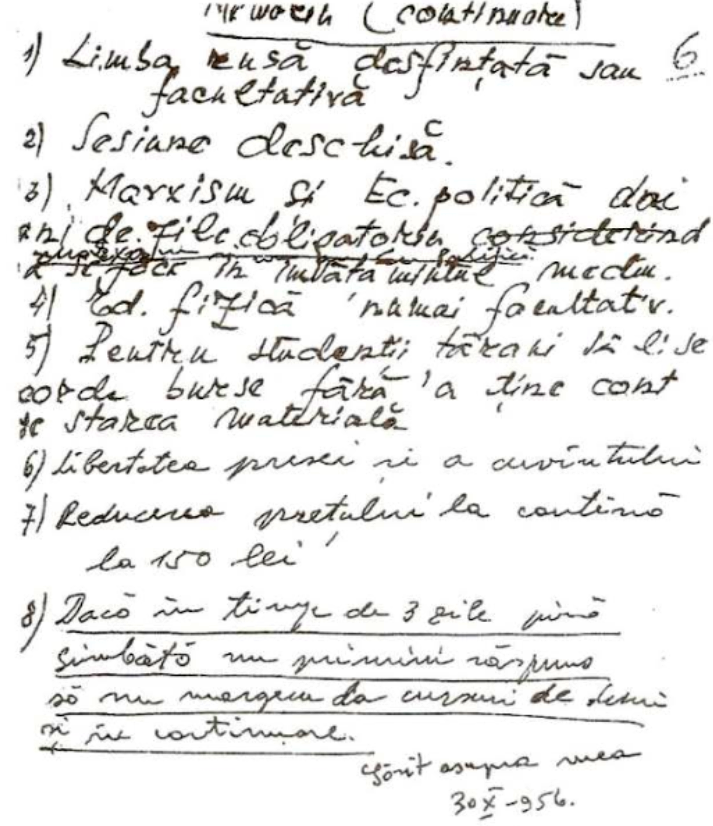 (continuare)
6
1) Limba rusă desființată sau
facultativă
2) Sesiune deschisă.
3) Marxism și Ec. politică doi
ani de zile obligatoriu considerînd
se face în învățămîntul mediu.
4) Ed. fizică numai facultativ.
5) Pentru studenții țărani să li se
corde burse fără a ține cont
de starea materială
6) Libertatea presei și a cuvîntului
7) Reducerea prețului la cantină
la 150 lei
8) Dacă în timp de 3 zile pînă
sîmbătă nu primim răspuns
să nu mergem la cursuri de luni
și în continuare.
Găsit asupra mea
30 X-956.